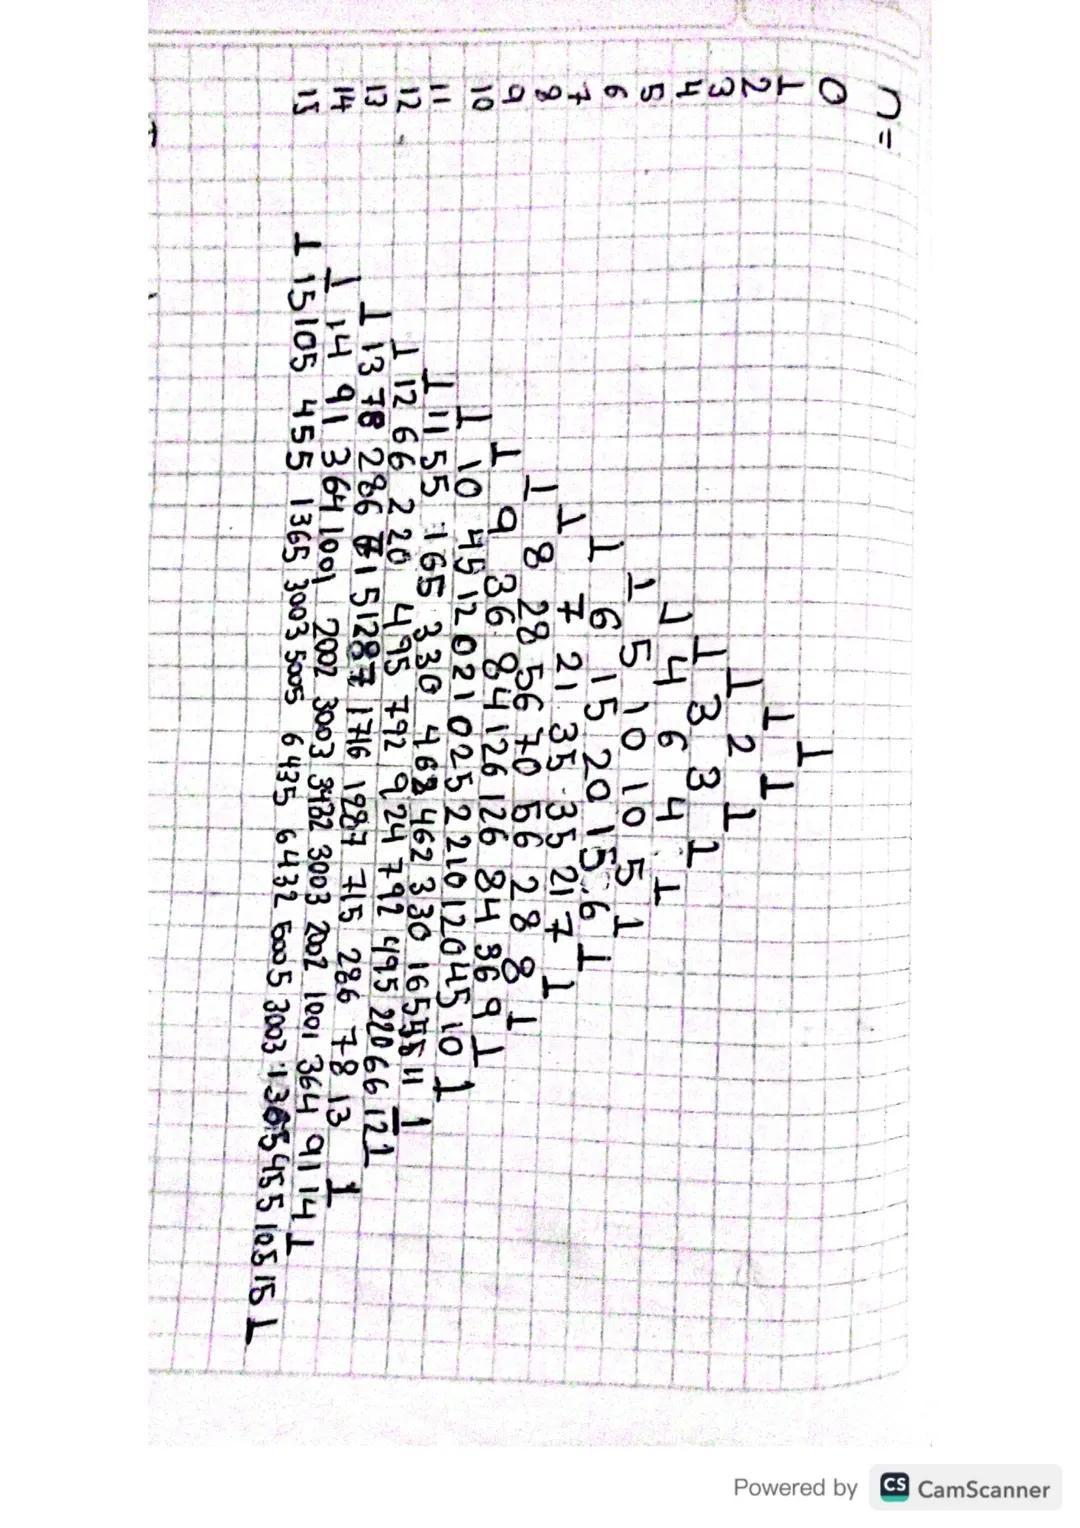 n=
0 1
1 1 1
2 1 2 1
3 1 3 3 1
4 1 4 6 4 1
5 1 5 10 10 5 1
6 1 6 15 20 15 6 1
7 1 7 21 35 35 21 7 1
8 1 8 28 56 70 56 28 8 1
9 1 9 36 84 126 126 84 36 9 1
10 1 10 45 120 210 252 210 120 45 10 1
11 1 11 55 165 330 462 462 330 165 55 11 1
12 1 12 66 220 495 792 924 792 495 220 66 12 1
13 1 13 78 286 715 1287 1716 1287 715 286 78 13 1
14 1 14 91 364 1001 2002 3003 3432 3003 2002 1001 364 91 14 1
15 1 15 105 455 1365 3003 5005 6435 6432 5005 3003 1365 455 105 15 1
Powered by CS CamScanner